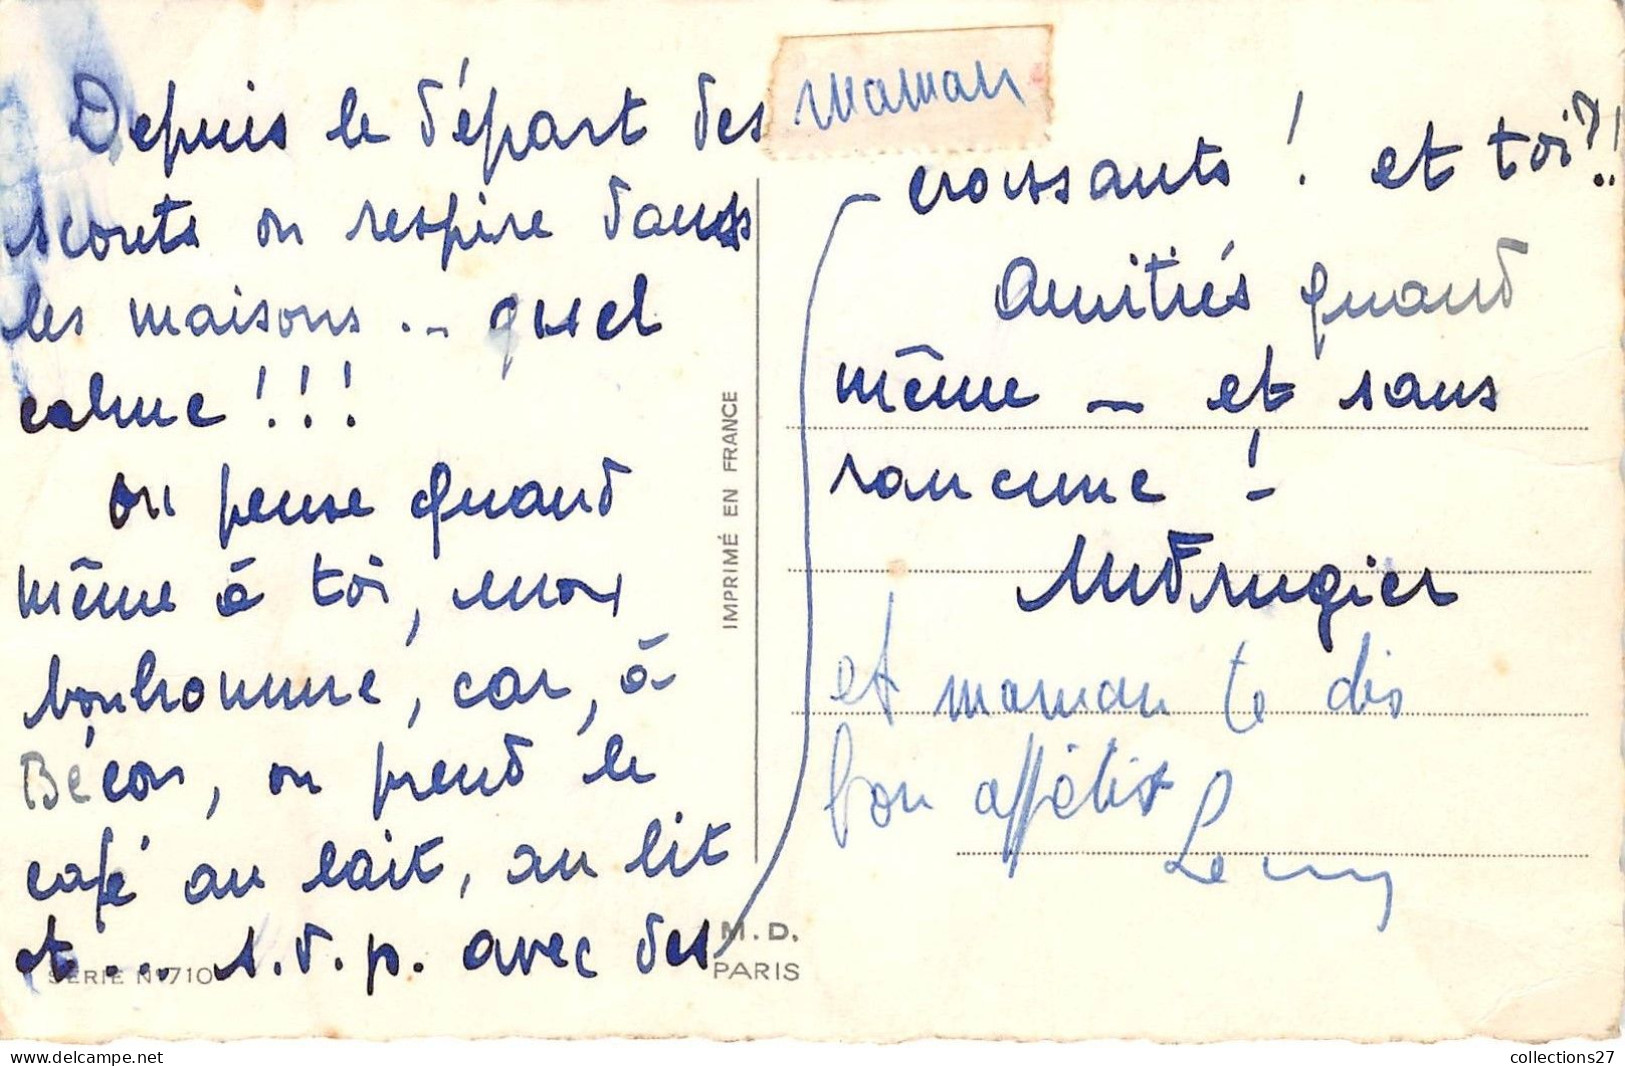 Depuis le départ des
scouts on respire dans
les maisons .. quel
calme !!!
on pense quand
même à toi, mon
bonhomme, car, à
Bécon, on prend le
café au lait, au lit
et ... s.v.p. avec des
SÉRIE N° 710
IMPRIMÉ EN FRANCE
M.D.
PARIS
maman
croissants ! et toi ?!!
Amitiés quand
même — et sans
rancune !
et maman te dis
bon appétit
collections27